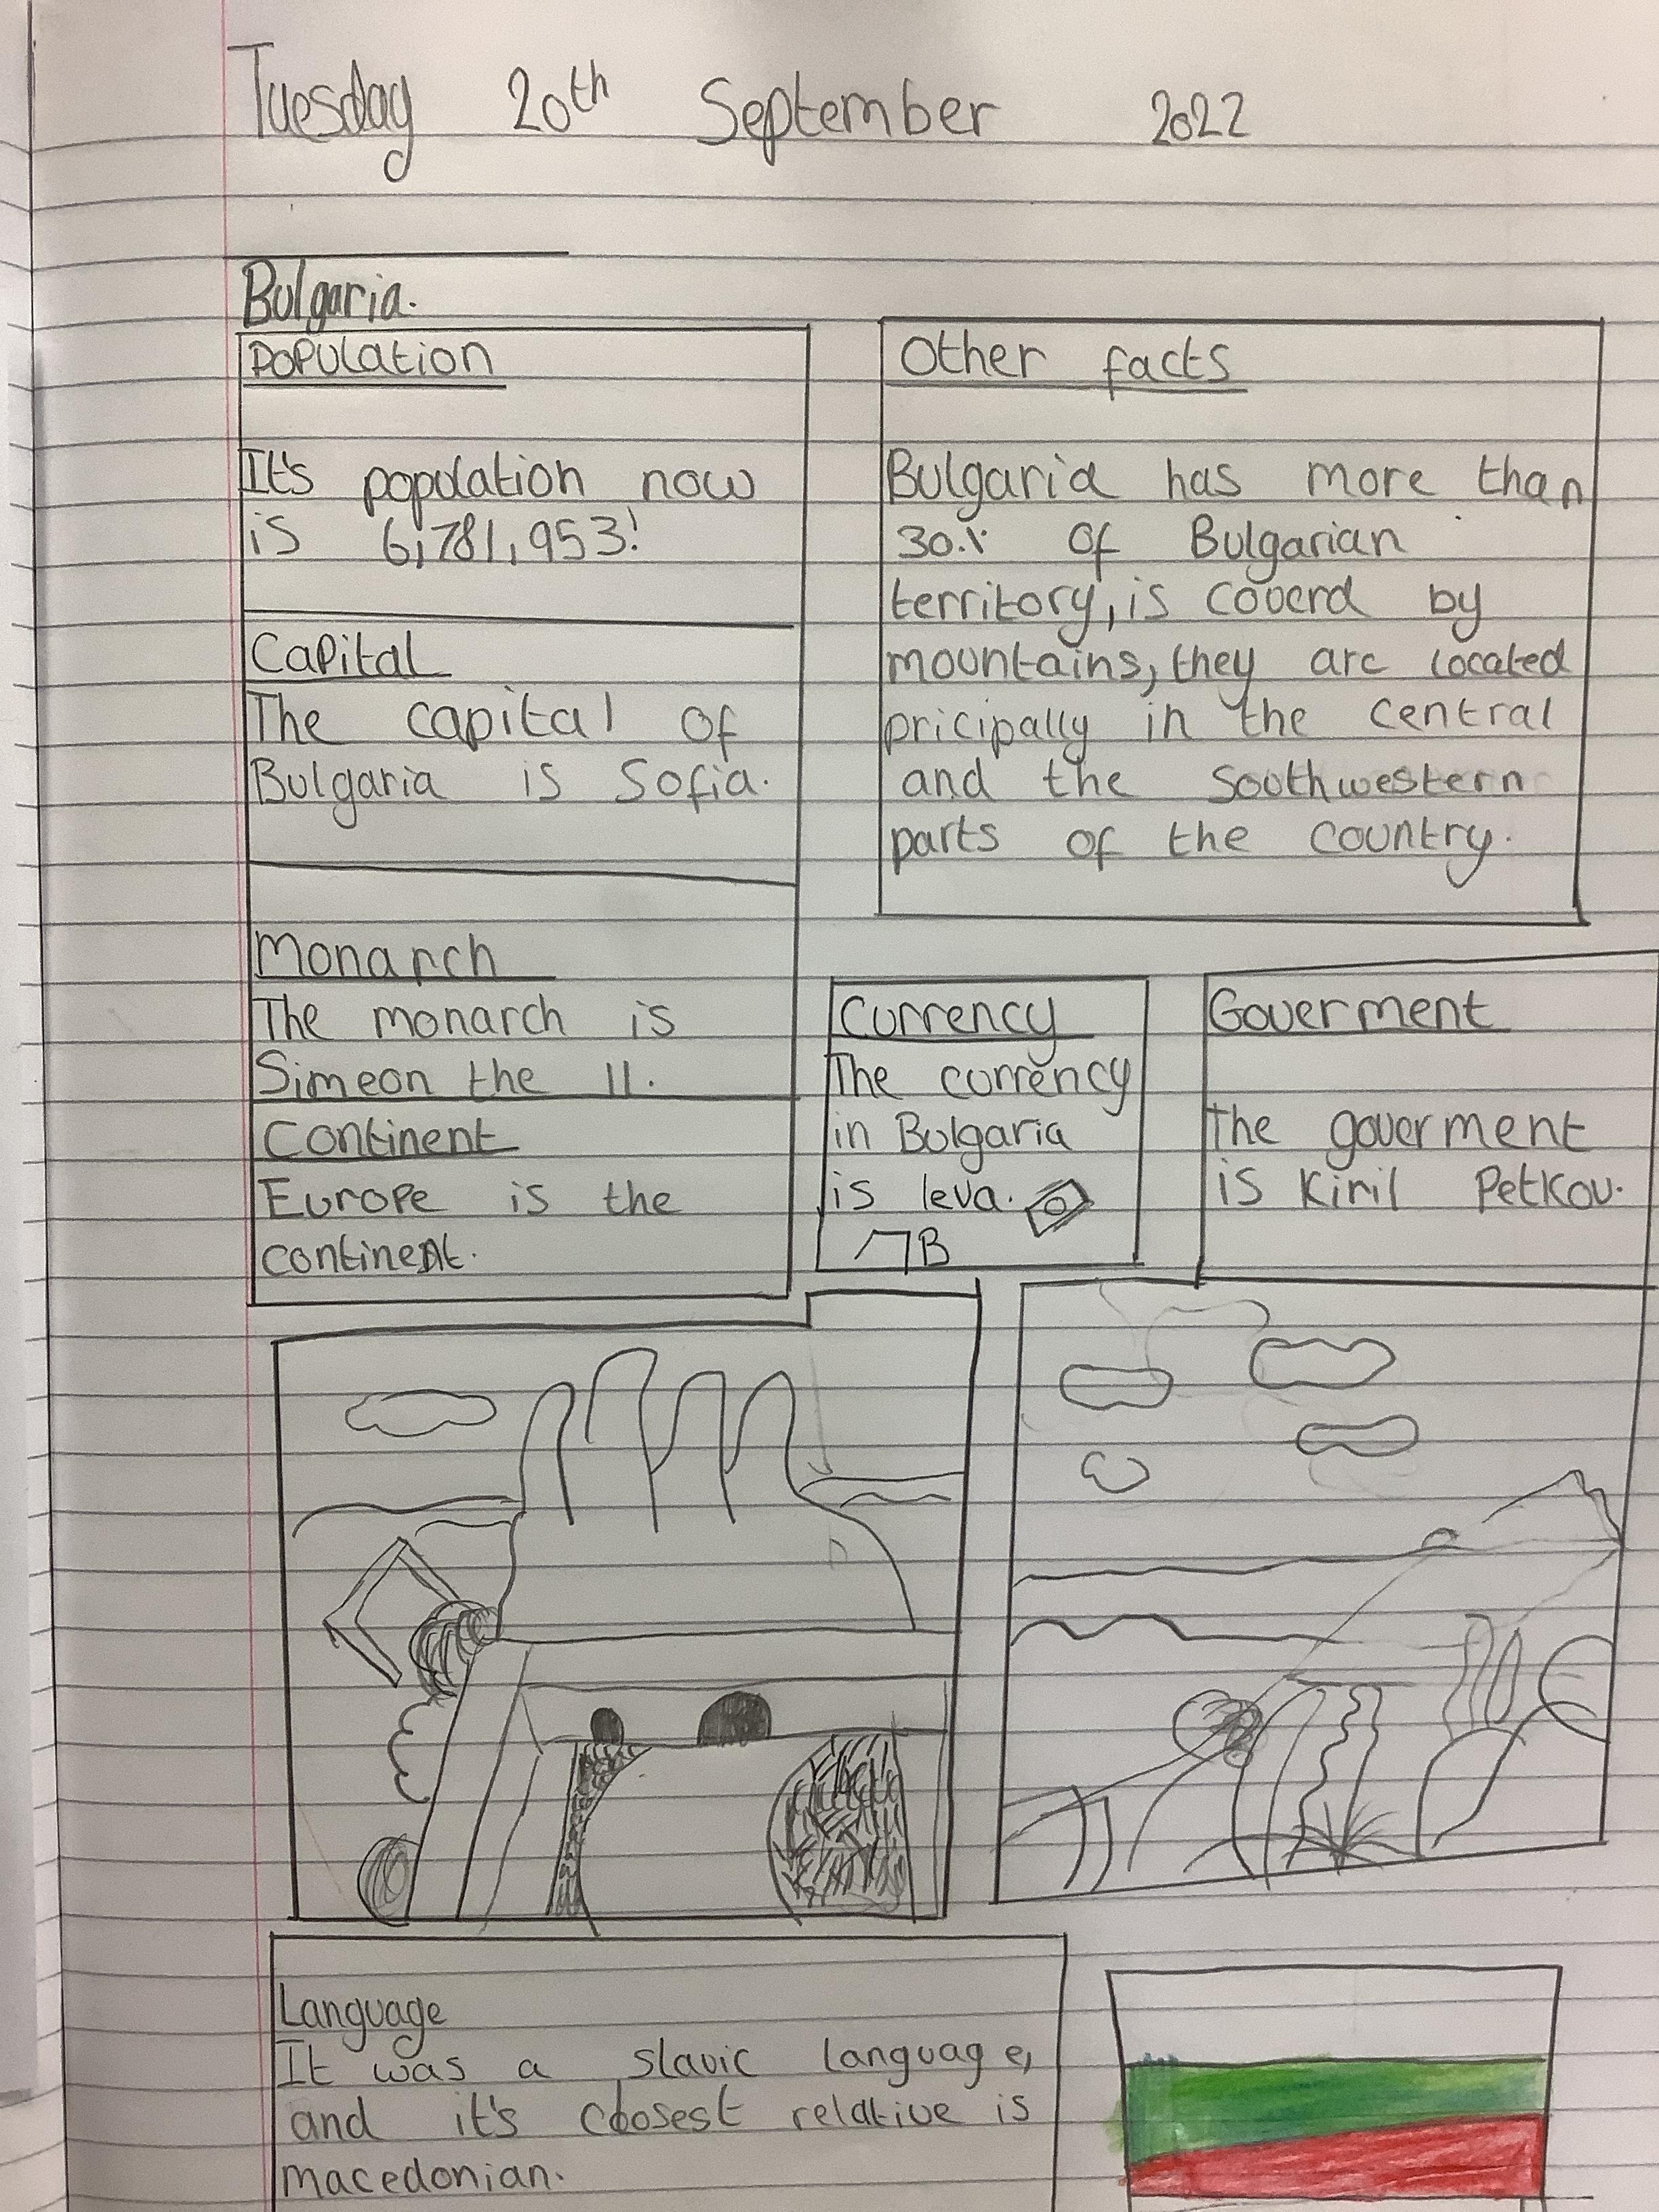 Tuesday 20th September 2022
Bulgaria.
Population
It's population now
is 6,781,953!
Capital
The capital of
Bulgaria is Sofia.
Monarch
The monarch is
Simeon the II.
Continent
Europe is the
continent.
Other facts
Bulgaria has more than
30% of Bulgarian
territory, is coverd by
mountains, they are located
pricipally in the central
and the southwestern
parts of the country.
Currency
The currency
in Bulgaria
is leva.
ЛB
Goverment
The goverment
is Kiril Petkov.
Language
It was a slavic language,
and it's closest relative is
macedonian.